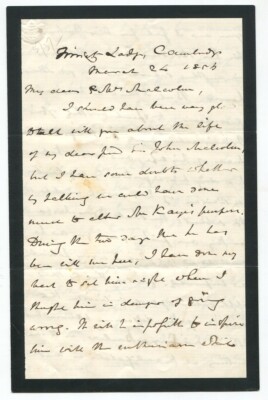 Trinity Lodge, Cambridge
March 24 1856
My dear Mrs Malcolm,
I should have been very gl
to talk with you about the life
of my dear friend Sir John Malcolm,
but I have some doubts whether
by talking we could have done
much to alter Mr Kaye's purpose.
During the two days that he has
been with me here, I have done my
best to set him right when I
thought him in danger of going
wrong. It is impossible to inspire
him with the enthusiasm which